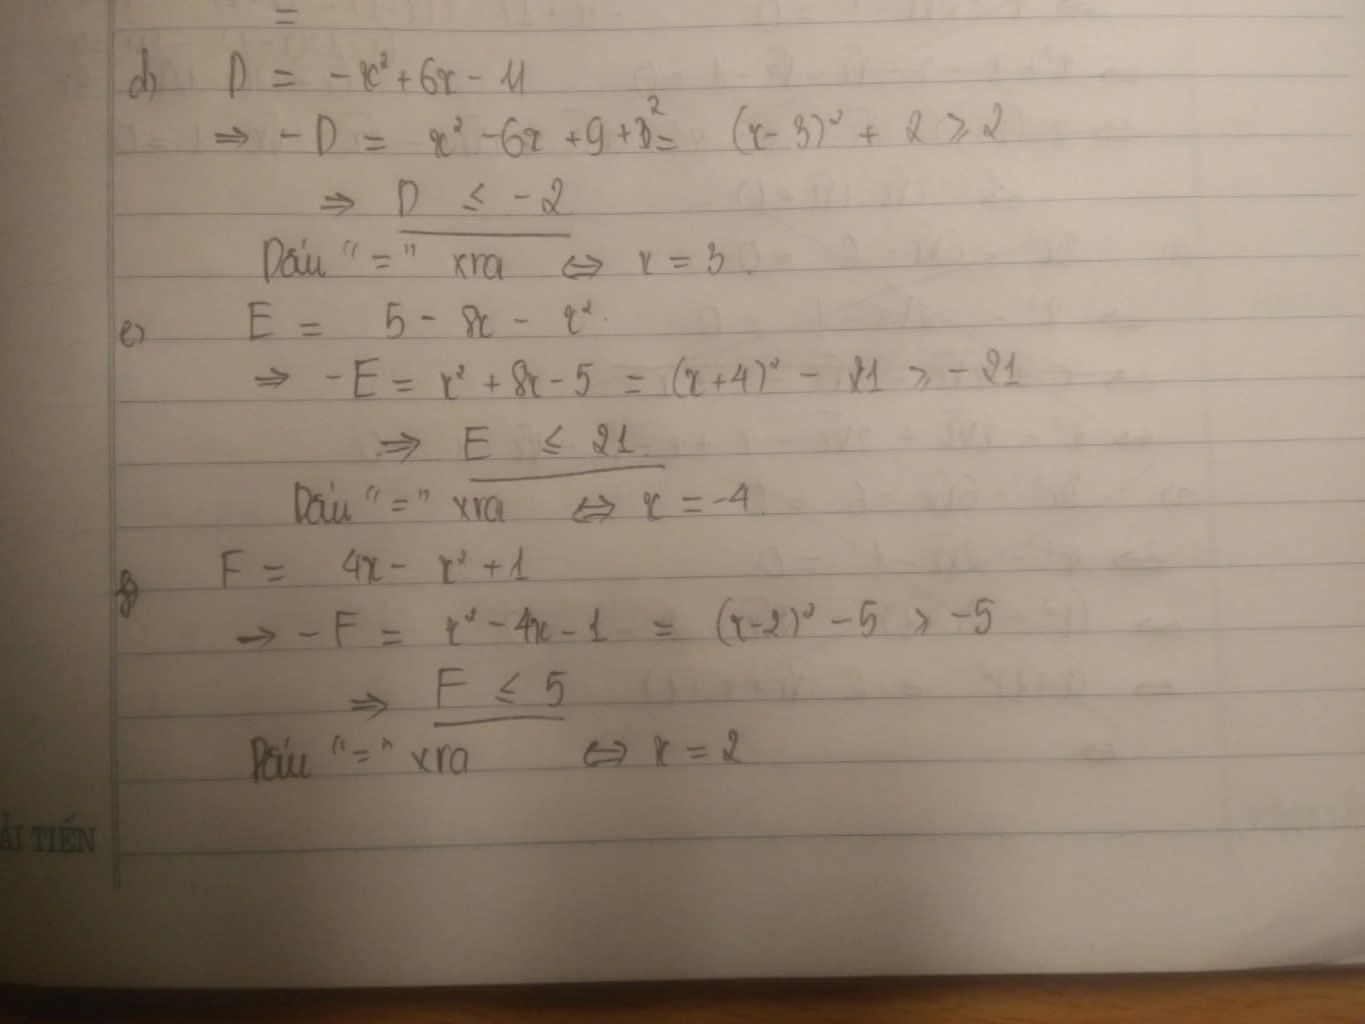 =
d) D = -x² + 6x - 11
⇒ -D = x² - 6x + 9 + 2 = (x-3)² + 2 ≥ 2
⇒ D ≤ -2
Dấu "=" xra ⇔ x = 3
e) E = 5 - 8x - x²
⇒ -E = x² + 8x - 5 = (x+4)² - 21 ≥ -21
⇒ E ≤ 21
Dấu "=" xra ⇔ x = -4
f) F = 4x - x² + 1
⇒ -F = x² - 4x - 1 = (x-2)² - 5 ≥ -5
⇒ F ≤ 5
Dấu "=" xra ⇔ x = 2
ẢI TIẾN